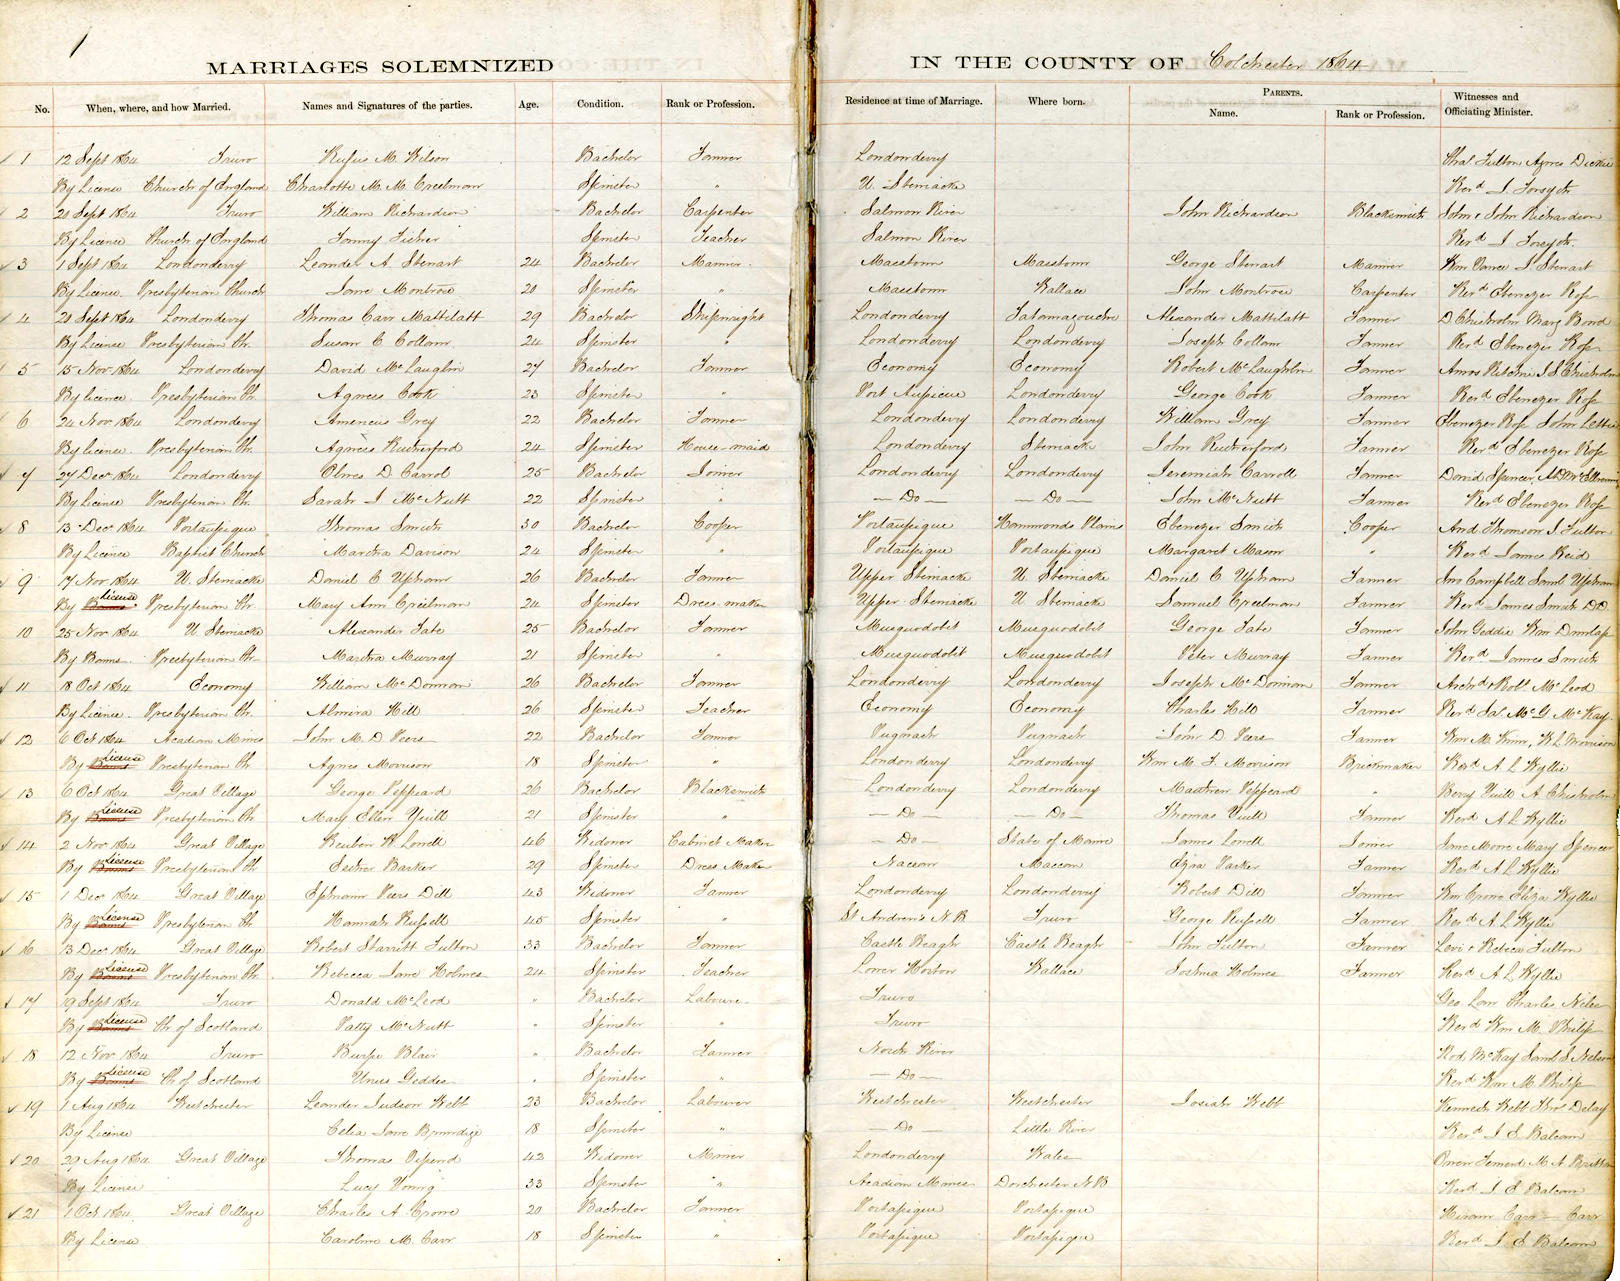 1
MARRIAGES SOLEMNIZED IN THE COUNTY OF Colchester 1864
No. When, where, and how Married. Names and Signatures of the parties. Age. Condition. Rank or Profession. Residence at time of Marriage. Where born. PARENTS. Name. Rank or Profession. Witnesses and Officiating Minister.
1 12 Sept 1864 Truro Rufus M. Wilson Bachelor Farmer Londonderry Chas. Fulton Agnes Dickie
By License Church of England Charlotte M. M. Creelman Spinster " U. Stewiacke Revd J. Forsyth
2 20 Sept 1864 Truro William Richardson Bachelor Carpenter Salmon River John Richardson Blacksmith John & John Richardson
By License Church of England Fanny Fisher Spinster Teacher Salmon River Revd J. Forsyth
3 1 Sept 1864 Londonderry Leander A Stewart 24 Bachelor Mariner Masstown Masstown George Stewart Mariner Wm Vance J. Stewart
By License. Presbyterian Church Jane Montrose 20 Spinster " Masstown Wallace John Montrose Carpenter Revd Ebenezer Ross
4 20 Sept 1864 Londonderry Thomas Carr Mattilatt 29 Bachelor Shipwright Londonderry Tatamagouche Alexander Mattilatt Farmer D Chisholm Marg Bond
By License Presbyterian Ch. Susan C Collam 24 Spinster " Londonderry Londonderry Joseph Collam Farmer Revd Ebenezer Ross
5 15 Nov 1864 Londonderry David McLauglin 27 Bachelor Farmer Economy Economy Robert McLaughlin Farmer Amos Ritchie J S Chisholm
By licence Presbyterian Ch. Agness Cook 23 Spinster " Port Aupicue Londonderry George Cook Farmer Revd Ebenezer Ross
6 24 Nov 1864 Londonderry Amencus Grey 22 Bachelor Farmer Londonderry Londonderry William Grey Farmer Ebenezer Ross John
By License. Presbyterian Ch. Agness Rutherford 24 Spinster House-maid Londonderry Stewiack John Rutherford Farmer Revd Ebenezer Ross
7 27 Decr 1864 Londonderry D Carrol 25 Bachelor Joiner Londonderry Londonderry Jeremiah Carroll Farmer David Spencer,
By License Presbyterian Ch. Sarah J McNutt 22 Spinster " — Do — — Do — John McNutt Farmer Revd Ebenezer Ross
8 13 Decr 1864 Portaupique Thomas Smith 30 Bachelor Cooper Portaupique Hammonds Plains Ebenezer Smith Cooper And Thomson J. Fulton
By License Baptist Church Martha Davison 24 Spinster " Portaupique Portaupique Margaret Mason " Revd James Reid
9 17 Nov 1864 U. Stewiacke Daniel C Upham 26 Bachelor Farmer Upper Stewiacke U. Stewiacke Daniel C Upham Farmer Jno Campbell Saml Upham
By Banns License Presbyterian Ch. Mary Ann Creelman 24 Spinster Dress-maker Upper Stewiacke U Stewiacke Samuel Creelman Farmer Revd James Smith D.D.
10 25 Nov 1864 U. Stewiacke Alexander Tate 25 Bachelor Farmer Musquodobit Musquodobit George Tate Farmer John Geddie Wm Dunlap
By Banns. Presbyterian Ch Martha Murray 21 Spinster " Musquodobit Musquodobit Peter Murray Farmer Revd James Smith
11 18 Oct 1864 Economy William McDorman 26 Bachelor Farmer Londonderry Londonderry Joseph McDorman Farmer Archd & Robt McLeod
By License. Presbyterian Ch. Almira Hill 26 Spinster Teacher Economy Economy Charles Hill Farmer Revd Jas. McG McKay
12 6 Oct 1864 Acadian Mines John M. D Peers 22 Bachelor Farmer Pugwash Pugwash John D Peers Farmer Wm M. W L Morrison
By Banns License Presbyterian Ch Agnes Morrison 18 Spinster " Londonderry Londonderry Wm M. F. Morrison Brickmaker Revd A L Wyllie
13 6 Oct 1864 Great Village George Peppard 26 Bachelor Blacksmith Londonderry Londonderry Matthew Peppard " Yuill A Chisholm
By Banns License Presbyterian Ch. Mary Ellen Yuill 21 Spinster " — Do — — Do — Thomas Yuill Farmer Revd A L Wyllie
14 2 Nov 1864 Great Village Reuben W. Lowell 46 Widower Cabinet Maker — Do — State of Maine James Lowell Joiner Jane Moore Mary Spencer
By Banns License Presbyterian Ch Esther Barker 29 Spinster Dress Maker Maccan Ezra Parker Farmer Revd A L Wyllie
15 1 Decr 1864 Great Village Ephraim Peers Dill 43 Widower Farmer Londonderry Londonderry Robert Dill Farmer Wm Crowe Eliza Wyllie
By Banns License Presbyterian Ch Hannah Russell 45 Spinster " St Andrew's N B Truro George Russell Farmer Revd A L Wyllie
16 3 Decr 1864 Great Village Robert Starratt Fulton 33 Bachelor Farmer Castle Reagh Castle Reagh John Fulton Farmer Levi & Rebeca Fulton
By Banns License Presbyterian Ch. Rebecca Jane Holmes 24 Spinster Teacher Lower Horton Wallace Joshua Holmes Farmer Revd A L Wyllie
17 19 Sept 1864 Truro Donald McLeod " Bachelor Laboure. Truro Geo Law Charles Niles
By Banns License Ch. of Scotland Patty McNutt " Spinster " Truro Revd Wm M. Philip
18 12 Nov 1864 Truro Burpe Blair " Bachelor Farmer North River Rod McKay Saml J. Nelson
By Banns License Ch of Scotland Unus Geddes " Spinster " — Do — Revd Wm M. Philip
19 1 Aug 1864 Westchester Leander Judson Webb 23 Bachelor Labourer Westchester Westchester Josiah Webb Kenneth Webb Thos Delay
By License Celia Jane Brundige 18 Spinster " — Do — Little River Revd J. E. Balcom
20 29 Aug 1864 Great Village Thomas Vipond 42 Widower Miner Londonderry Wales Owen M. A. Britton
By License Lucy Young 33 Spinster " Acadian Mines Dorchester N B Revd J E Balcom
21 1 Oct 1864 Great Village Charles A. Crowe 20 Bachelor Farmer Portapique Portapique Hiram Carr — Carr
By License Caroline M. Carr 18 Spinster " Portapique Portapique Revd J. E Balcom